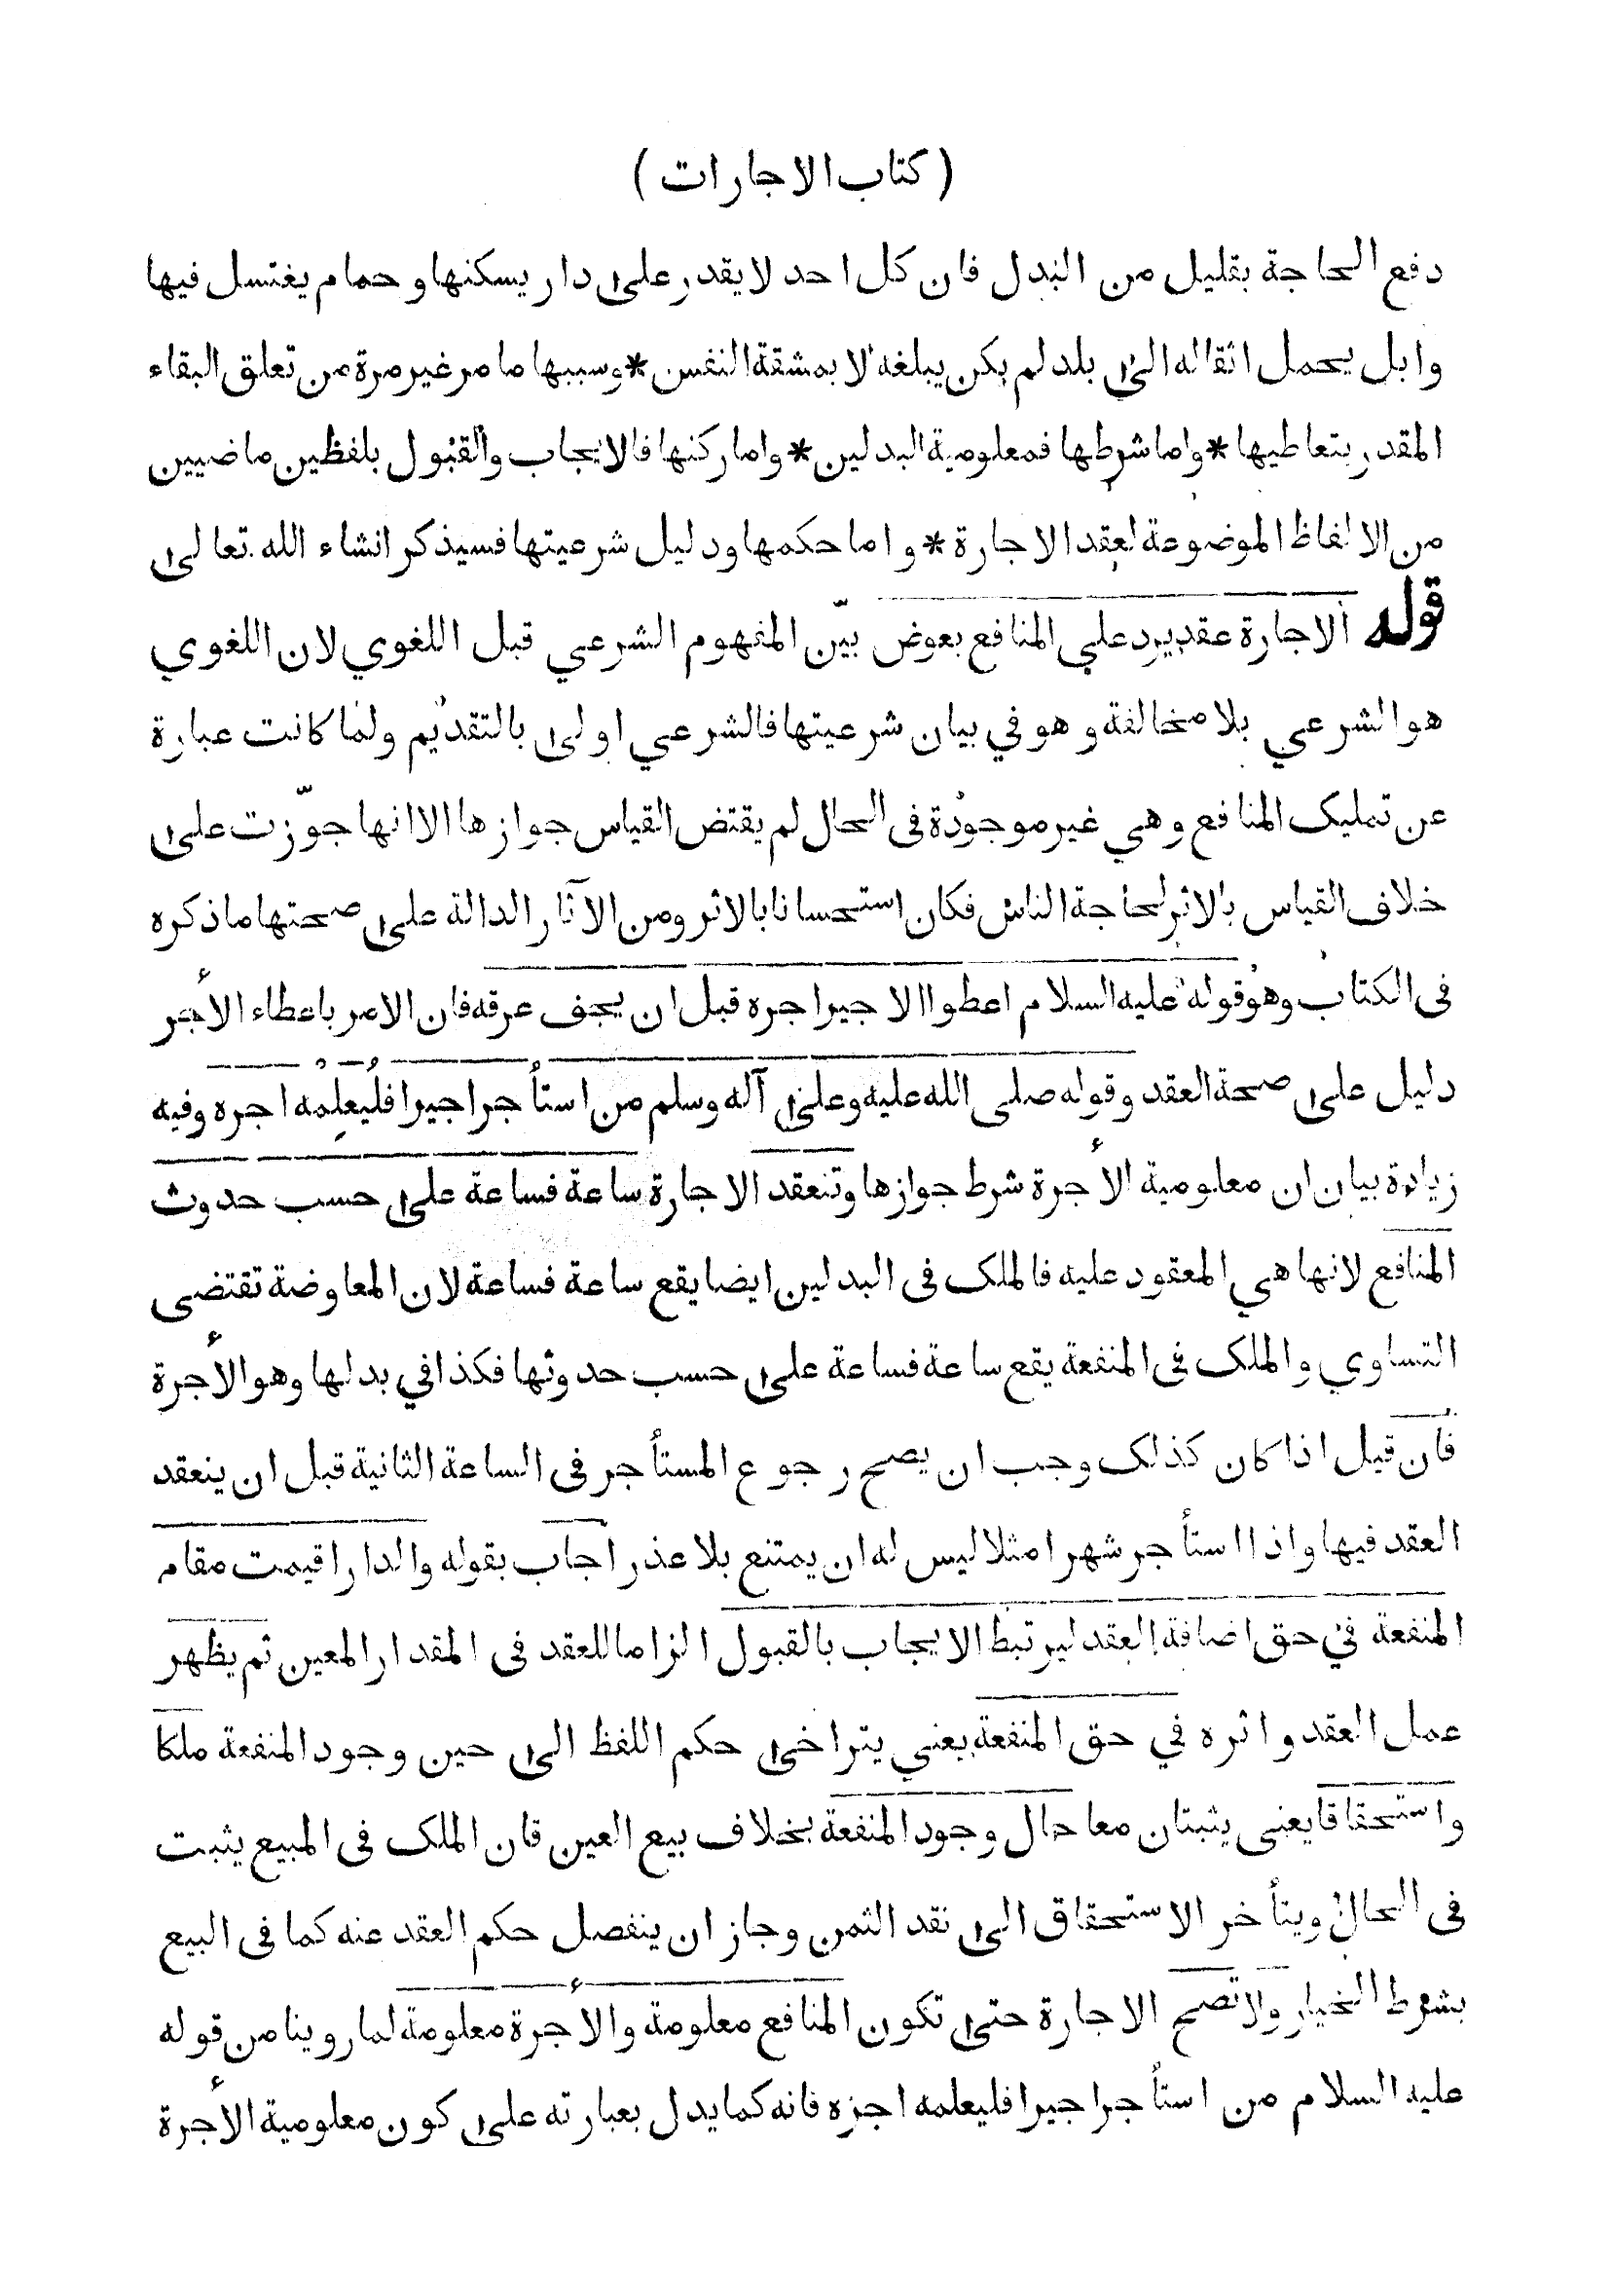 ( كتاب الاجارات )
دفع الحاجة بقليل من البدل فان كل احد لا يقدر على دار يسكنها و حمام يغتسل فيها
وابل يحمل اثقاله الى بلد لم يكن يبلغه الا بمشقة النفس * وسببها ما مر غير مرة من تعلق البقاء
المقدر بتعاطيها * واما شرطها فمعلومية البدلين * واما ركنها فالايجاب والقبول بلفظين ماضيين
من الالفاظ الموضوعة لعقد الاجارة * واما حكمها ودليل شرعيتها فسيذكر انشاء الله تعالى
قوله الاجارة عقد يرد على المنافع بعوض بيّن المفهوم الشرعي قبل اللغوي لان اللغوي
هو الشرعي بلا مخالفة و هو في بيان شرعيتها فالشرعي اولى بالتقديم ولما كانت عبارة
عن تمليك المنافع وهي غير موجودة فى الحال لم يقتض القياس جوازها الا انها جوّزت على
خلاف القياس بالاثر لحاجة الناس فكان استحسانا بالاثر ومن الآثار الدالة على صحتها ما ذكره
فى الكتاب وهو قوله عليه السلام اعطوا الاجير اجره قبل ان يجف عرقه فان الامر باعطاء الأجر
دليل على صحة العقد وقوله صلى الله عليه وعلى آله وسلم من استأجر اجيرا فليُعلِمْه اجره وفيه
زيادة بيان ان معلومية الأجرة شرط جوازها وتنعقد الاجارة ساعة فساعة على حسب حدوث
المنافع لانها هي المعقود عليه فالملك فى البدلين ايضا يقع ساعة فساعة لان المعاوضة تقتضى
التساوي والملك فى المنفعة يقع ساعة فساعة على حسب حدوثها فكذا في بدلها وهو الأجرة
فان قيل اذا كان كذلك وجب ان يصح رجوع المستأجر فى الساعة الثانية قبل ان ينعقد
العقد فيها واذا استأجر شهرا مثلا ليس له ان يمتنع بلا عذر اجاب بقوله والدار اقيمت مقام
المنفعة في حق اضافة العقد ليرتبط الايجاب بالقبول الزاما للعقد فى المقدار المعين ثم يظهر
عمل العقد واثره في حق المنفعة يعني يتراخى حكم اللفظ الى حين وجود المنفعة ملكا
واستحقاقا يعنى يثبتان معا حال وجود المنفعة بخلاف بيع العين فان الملك فى المبيع يثبت
فى الحال ويتأخر الاستحقاق الى نقد الثمن وجاز ان ينفصل حكم العقد عنه كما فى البيع
بشرط الخيار ولا تصح الاجارة حتى تكون المنافع معلومة والأجرة معلومة لما روينا من قوله
عليه السلام من استأجر اجيرا فليعلمه اجره فانه كما يدل بعبارته على كون معلومية الأجرة